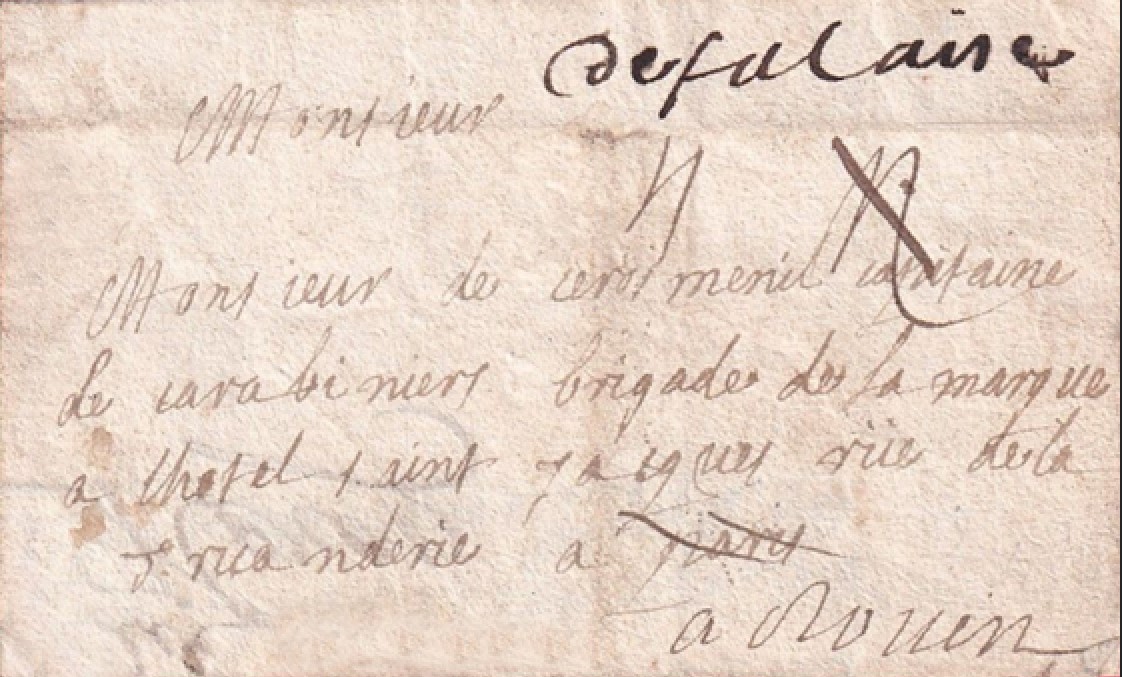 defalaise
Monsieur
4
Monsieur de cerismenil capitaine
de carabiniers brigade de la marque
a lhotel saint jacques rüe dela
a paris
a Rouen